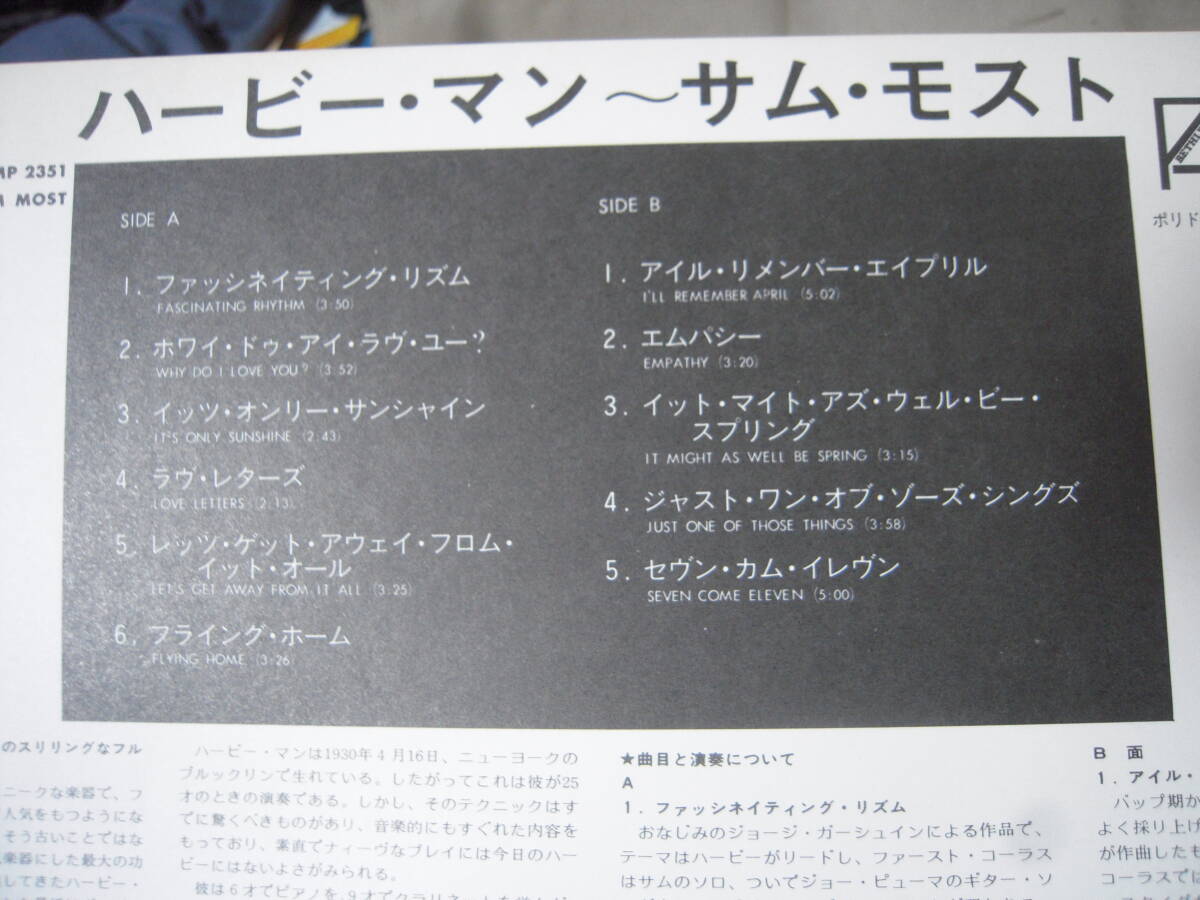 ハービー・マン〜サム・モスト
MP 2351
MOST
ポリド
SIDE A
1. ファッシネイティング・リズム
FASCINATING RHYTHM (3:50)
2. ホワイ・ドゥ・アイ・ラヴ・ユー?
WHY DO I LOVE YOU? (3:52)
3. イッツ・オンリー・サンシャイン
IT'S ONLY SUNSHINE (2:43)
4. ラヴ・レターズ
LOVE LETTERS (2:13)
5. レッツ・ゲット・アウェイ・フロム・
イット・オール
LET'S GET AWAY FROM IT ALL (3:25)
6. フライング・ホーム
FLYING HOME (3:26)
SIDE B
1. アイル・リメンバー・エイプリル
I'LL REMEMBER APRIL (5:02)
2. エムパシー
EMPATHY (3:20)
3. イット・マイト・アズ・ウェル・ビー・
スプリング
IT MIGHT AS WELL BE SPRING (3:15)
4. ジャスト・ワン・オブ・ゾーズ・シングズ
JUST ONE OF THOSE THINGS (3:58)
5. セヴン・カム・イレヴン
SEVEN COME ELEVEN (5:00)
のスリリングなフル
ニークな楽器で、フ
人気をもつようにな
そう古いことではな
楽器にした最大の功
してきたハービー・
ハービー・マンは1930年4月16日、ニューヨークの
ブルックリンで生れている。したがってこれは彼が25
才のときの演奏である。しかし、そのテクニックはす
でに驚くべきものがあり、音楽的にもすぐれた内容を
もっており、素直でナイーヴなプレイには今日のハー
ビーにはないよさがみられる。
彼は6才でピアノを、9才でクラリネットを
★曲目と演奏について
A
1. ファッシネイティング・リズム
おなじみのジョージ・ガーシュインによる作品で、
テーマはハービーがリードし、ファースト・コーラス
はサムのソロ、ついでジョー・ピューマのギター・ソ
B 面
1. アイル・
バップ期か
よく採り上げ
が作曲したも
コーラスでは